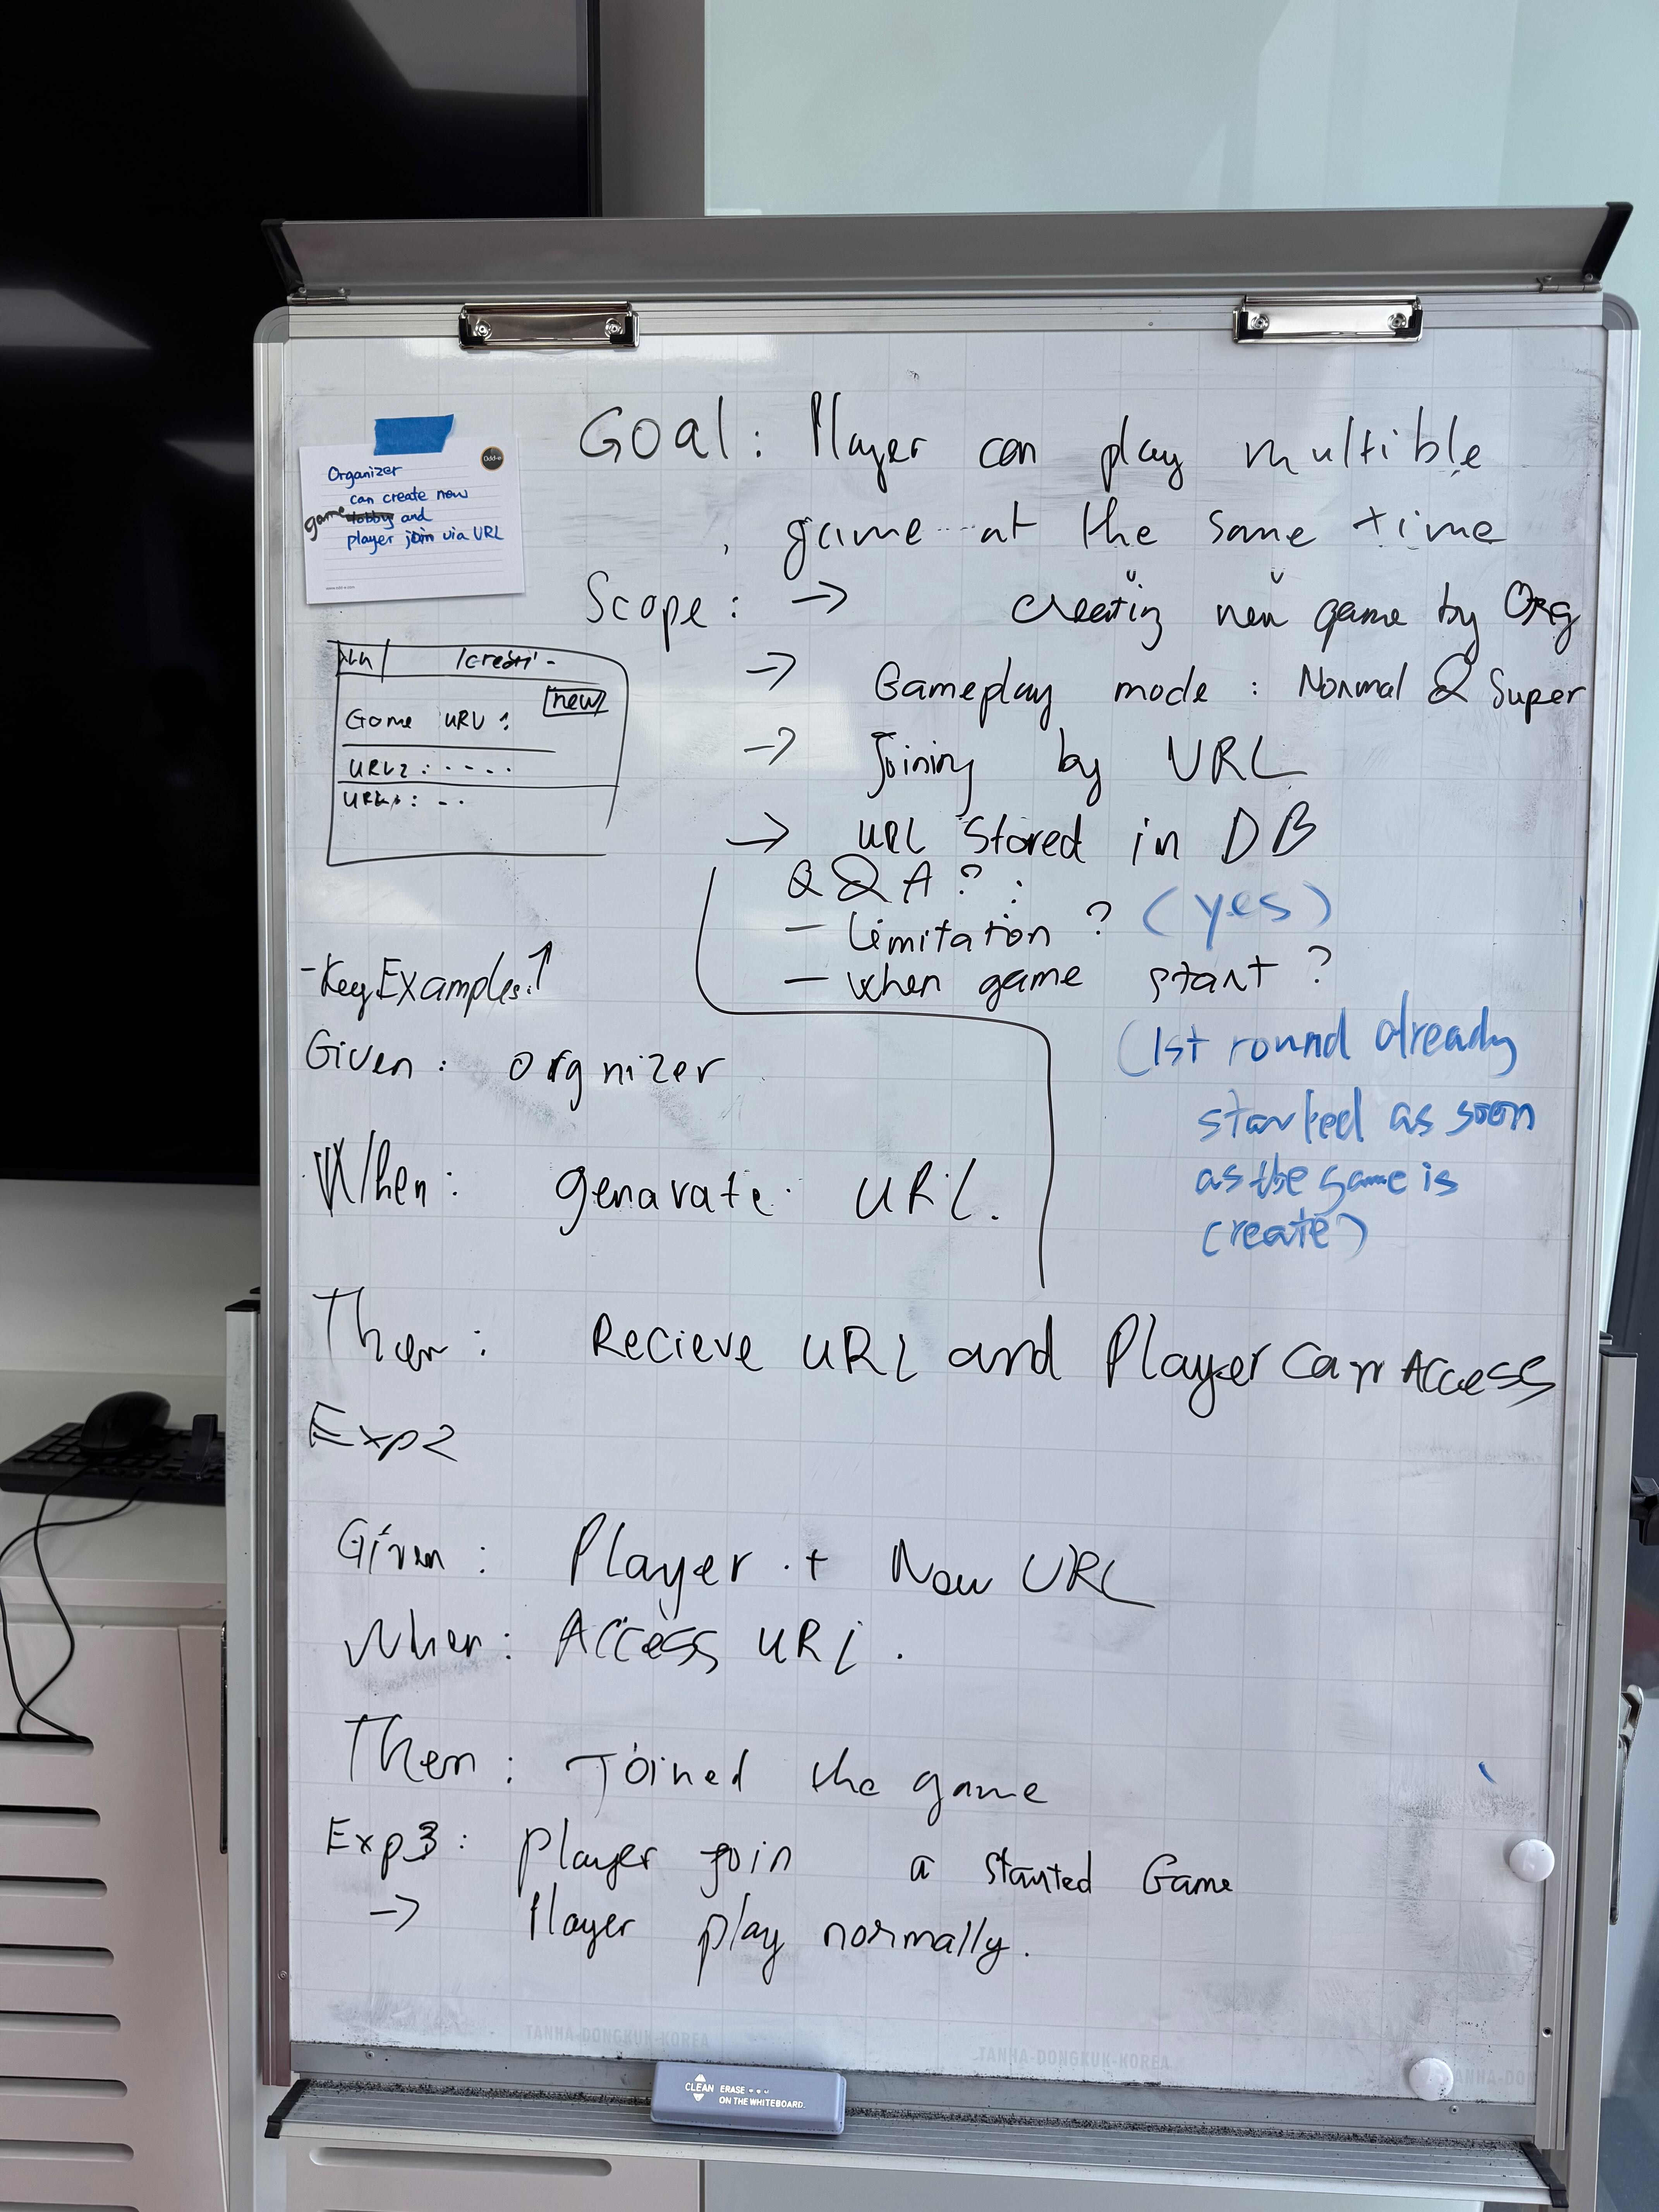 Odd-e
Organizer
can create new
game lobby and
player join via URL
www.odd-e.com
Goal: Player can play multible
game at the same time
Scope: → creating new game by Org
→ Gameplay mode: Normal & Super
→ Joining by URL
→ URL Stored in DB
/creati-
new
Game URL:
URL2: ....
Q & A?:
- Limitation? (yes)
- when game start?
(1st round already
started as soon
as the game is
create)
- Key Examples:↑
Given: orgnizer
When: genarate URL.
Then: Recieve URL and Player Can Access
Exp2
Given: Player + New URL
When: Access URL.
Then: Joined the game
Exp3: player join a started Game
→ Player play normally.
TANHA-DONGKUK-KOREA
TANHA-DONGKUK-KOREA
TANHA-DON
CLEAN ERASE
ON THE WHITEBOARD.